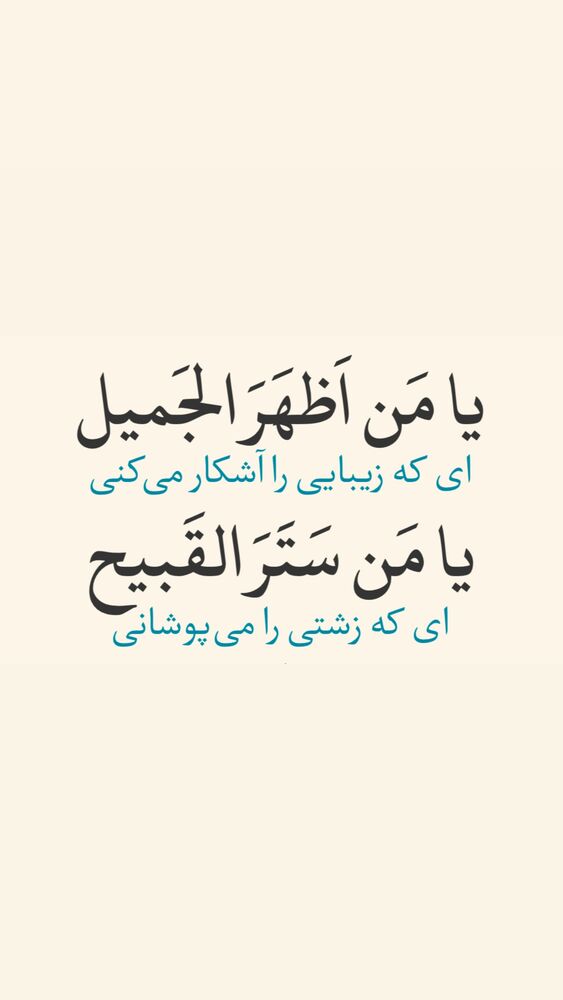 یا مَن اَظهَرَ الجَمیل
ای که زیبایی را آشکار می‌کنی
یا مَن سَتَرَ القَبیح
ای که زشتی را می‌پوشانی